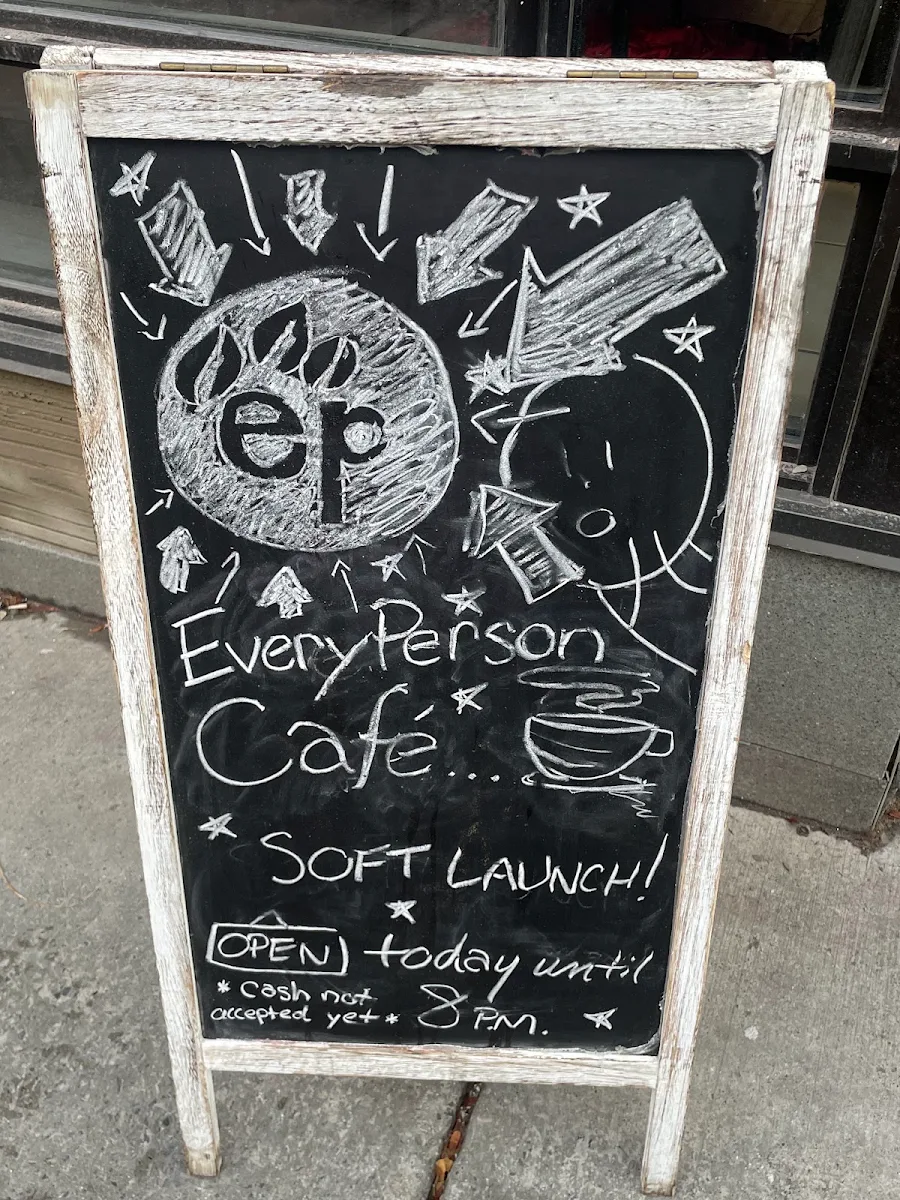 ep
EveryPerson
Café....
SOFT LAUNCH!
OPEN today until
8 P.M.
* Cash not
accepted yet *